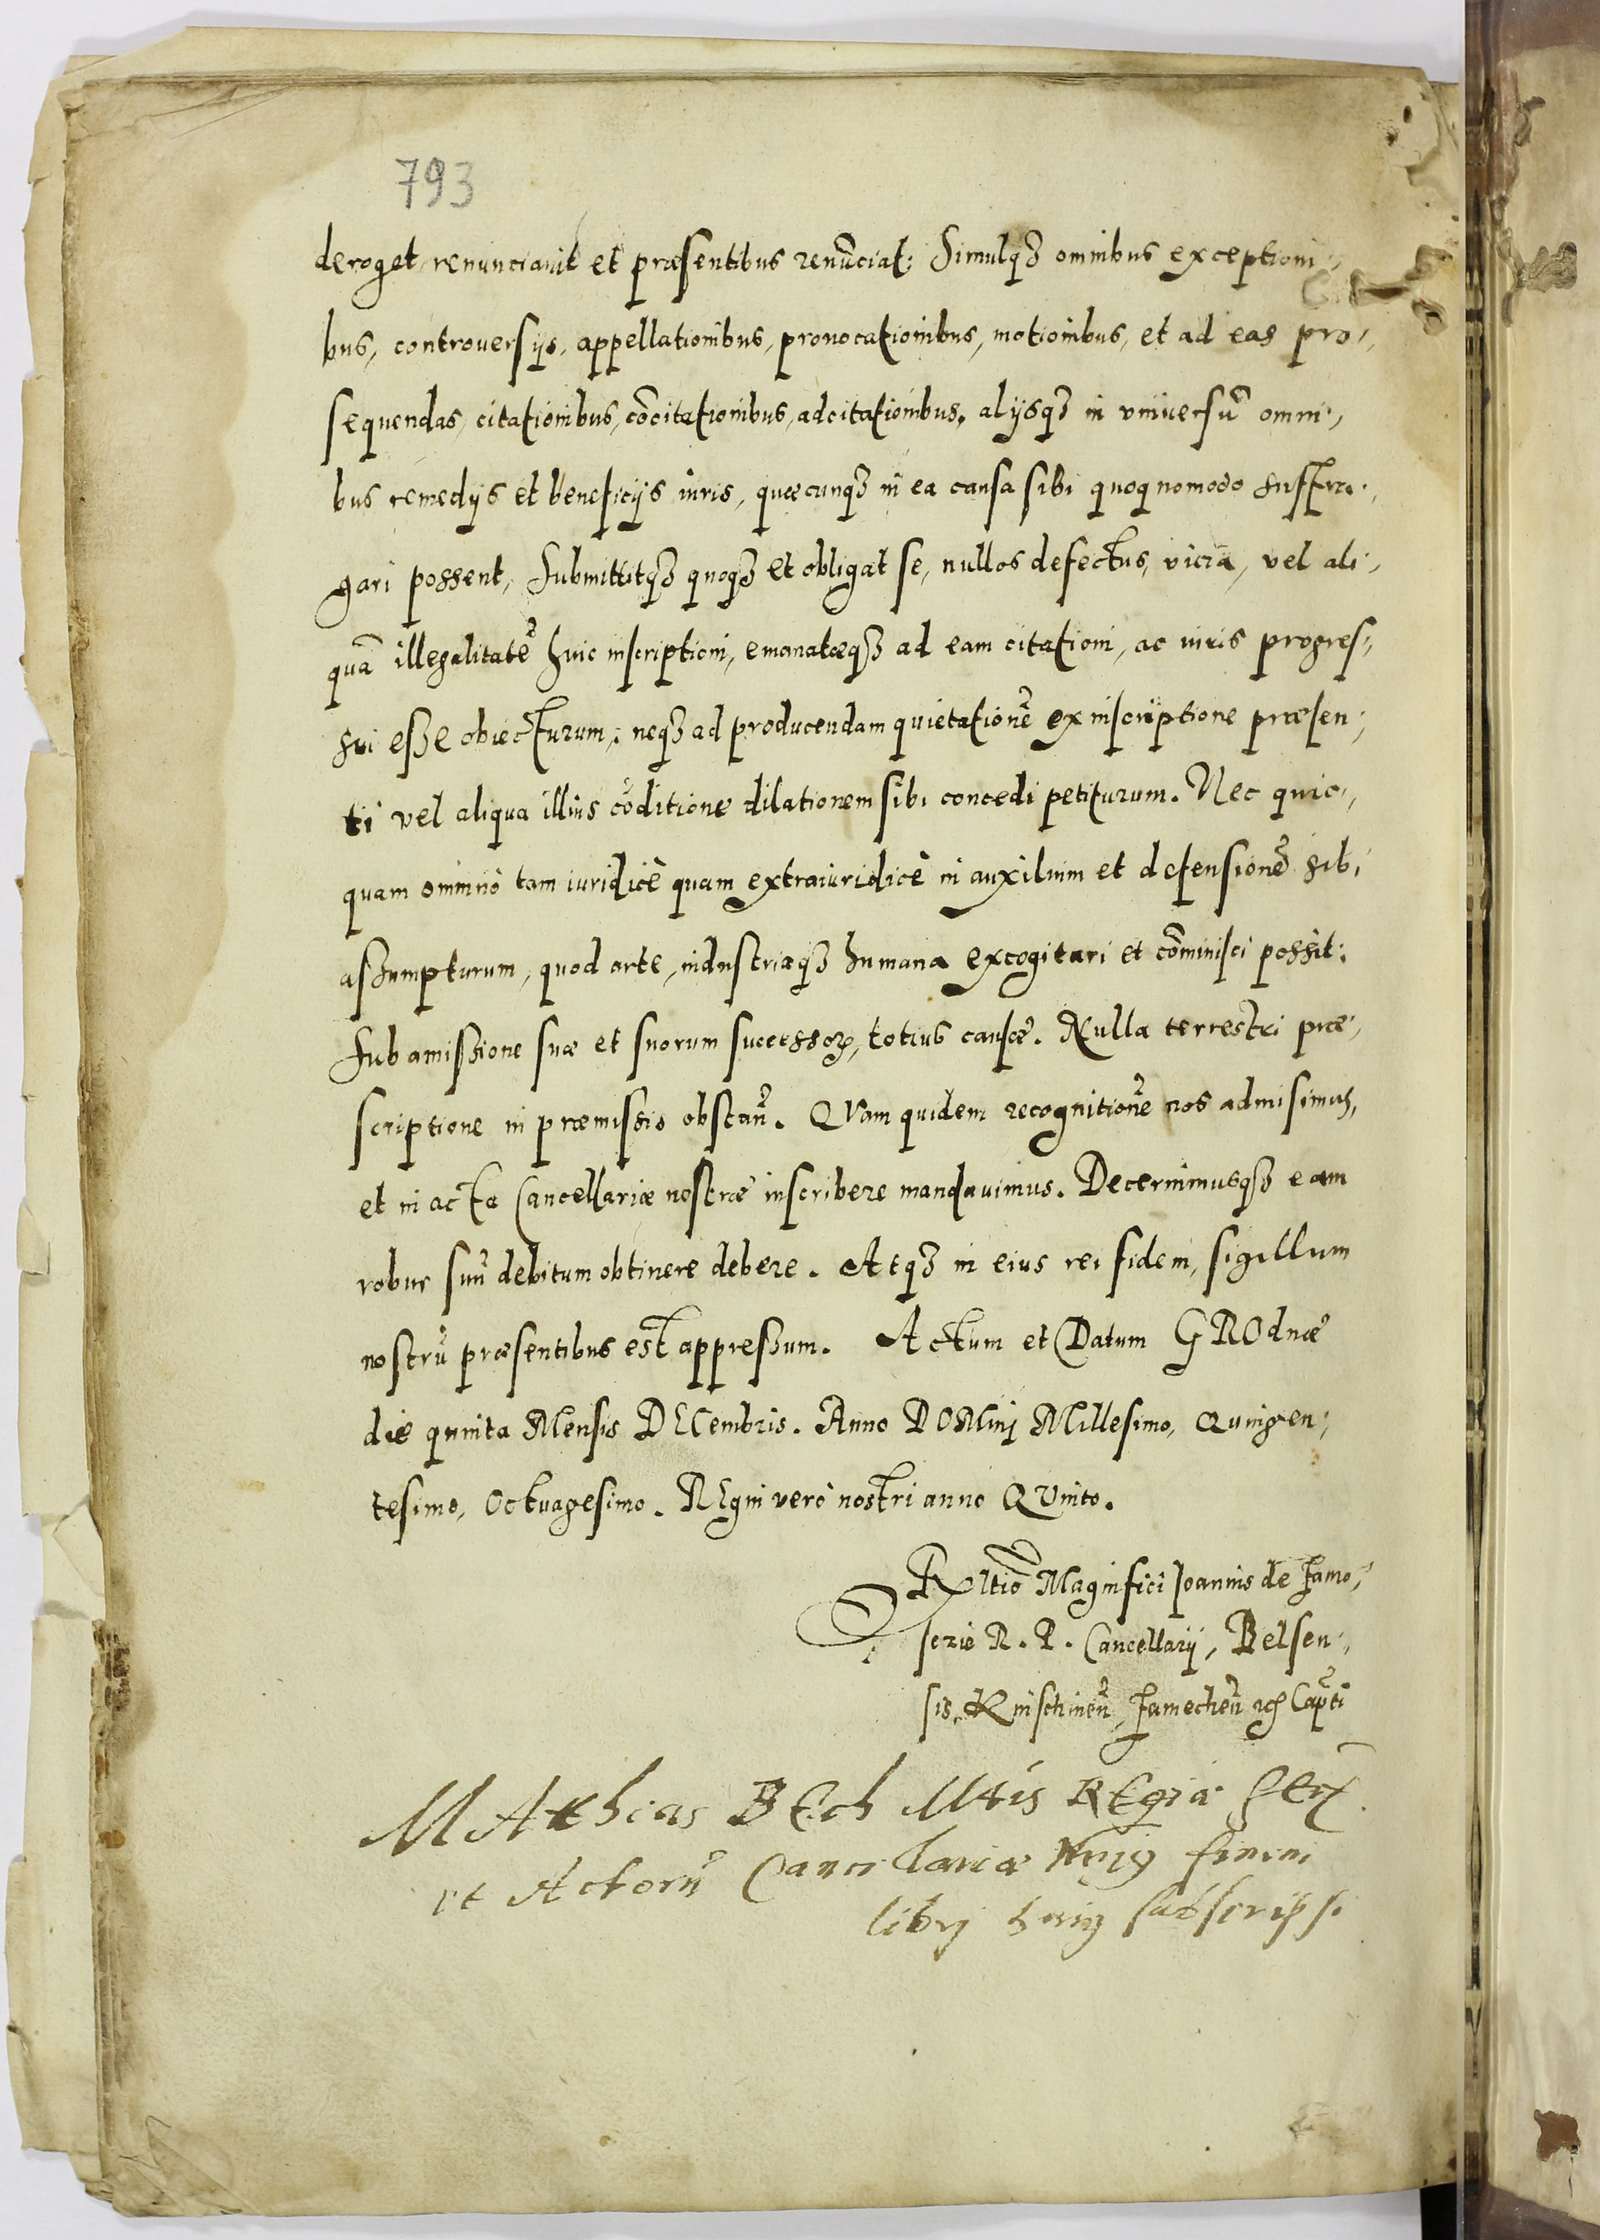 793
deroget renunciauit et præsentibus renũciat: Simulq3 omnibus exceptioni,
bus, controuersijs, appellationibus, prouocationibus, motionibus, et ad eas pro,
sequendas, citationibus, cõcitationibus, adcitationibus, alijsq3 in vniuersũ omni,
bus remedijs et beneficijs iuris, quæcunq3 in ea causa sibi quoquomodo suffra,
gari possent, Submittitq3 quoq3 et obligat se, nullos defectus, vicia, vel ali,
quã illegalitatẽ huic inscriptioni, emanatæq3 ad eam citationi, ac iuris progres,
sui esse obiecturum; neq3 ad producendam quietationẽ ex inscriptione præsen,
ti vel aliqua illius cõditione dilationem sibi concedi petiturum. Nec quic,
quam omninò tam iuridicè quam extraiuridicè in auxilium et defensionẽ sibi
assumpturum, quod arte, industriaq3 humana excogitari et cõminisci possit:
Sub amissione suæ et suorum successoꝝ, totius causæ. Nulla terrestri præ,
scriptione in præmissis obstan̄. QVam quidem recognitionẽ nos admisimus,
et in acta Cancellariæ nostræ inscribere mandauimus. Decernimusq3 eam
robur suũ debitum obtinere debere. Atq3 in eius rei fidem, sigillum
nostrũ præsentibus est appressum. Actum et Datum GROdnæ
die quinta Mensis DECembris. Anno DOMinj Millesimo, Quingen,
tesimo, Octuagesimo. REgni verò nostri anno QVinto.
Rltio Magnifici Ioannis de Zamo,
sczie R. P. Cancellarij, Belsen,
sis, Knischinen̄, Zamechen̄ Capti
MAthias BEch Mtis REgiæ
et Actorũ Cancellariæ finem
librj huiꝰ subscripsi